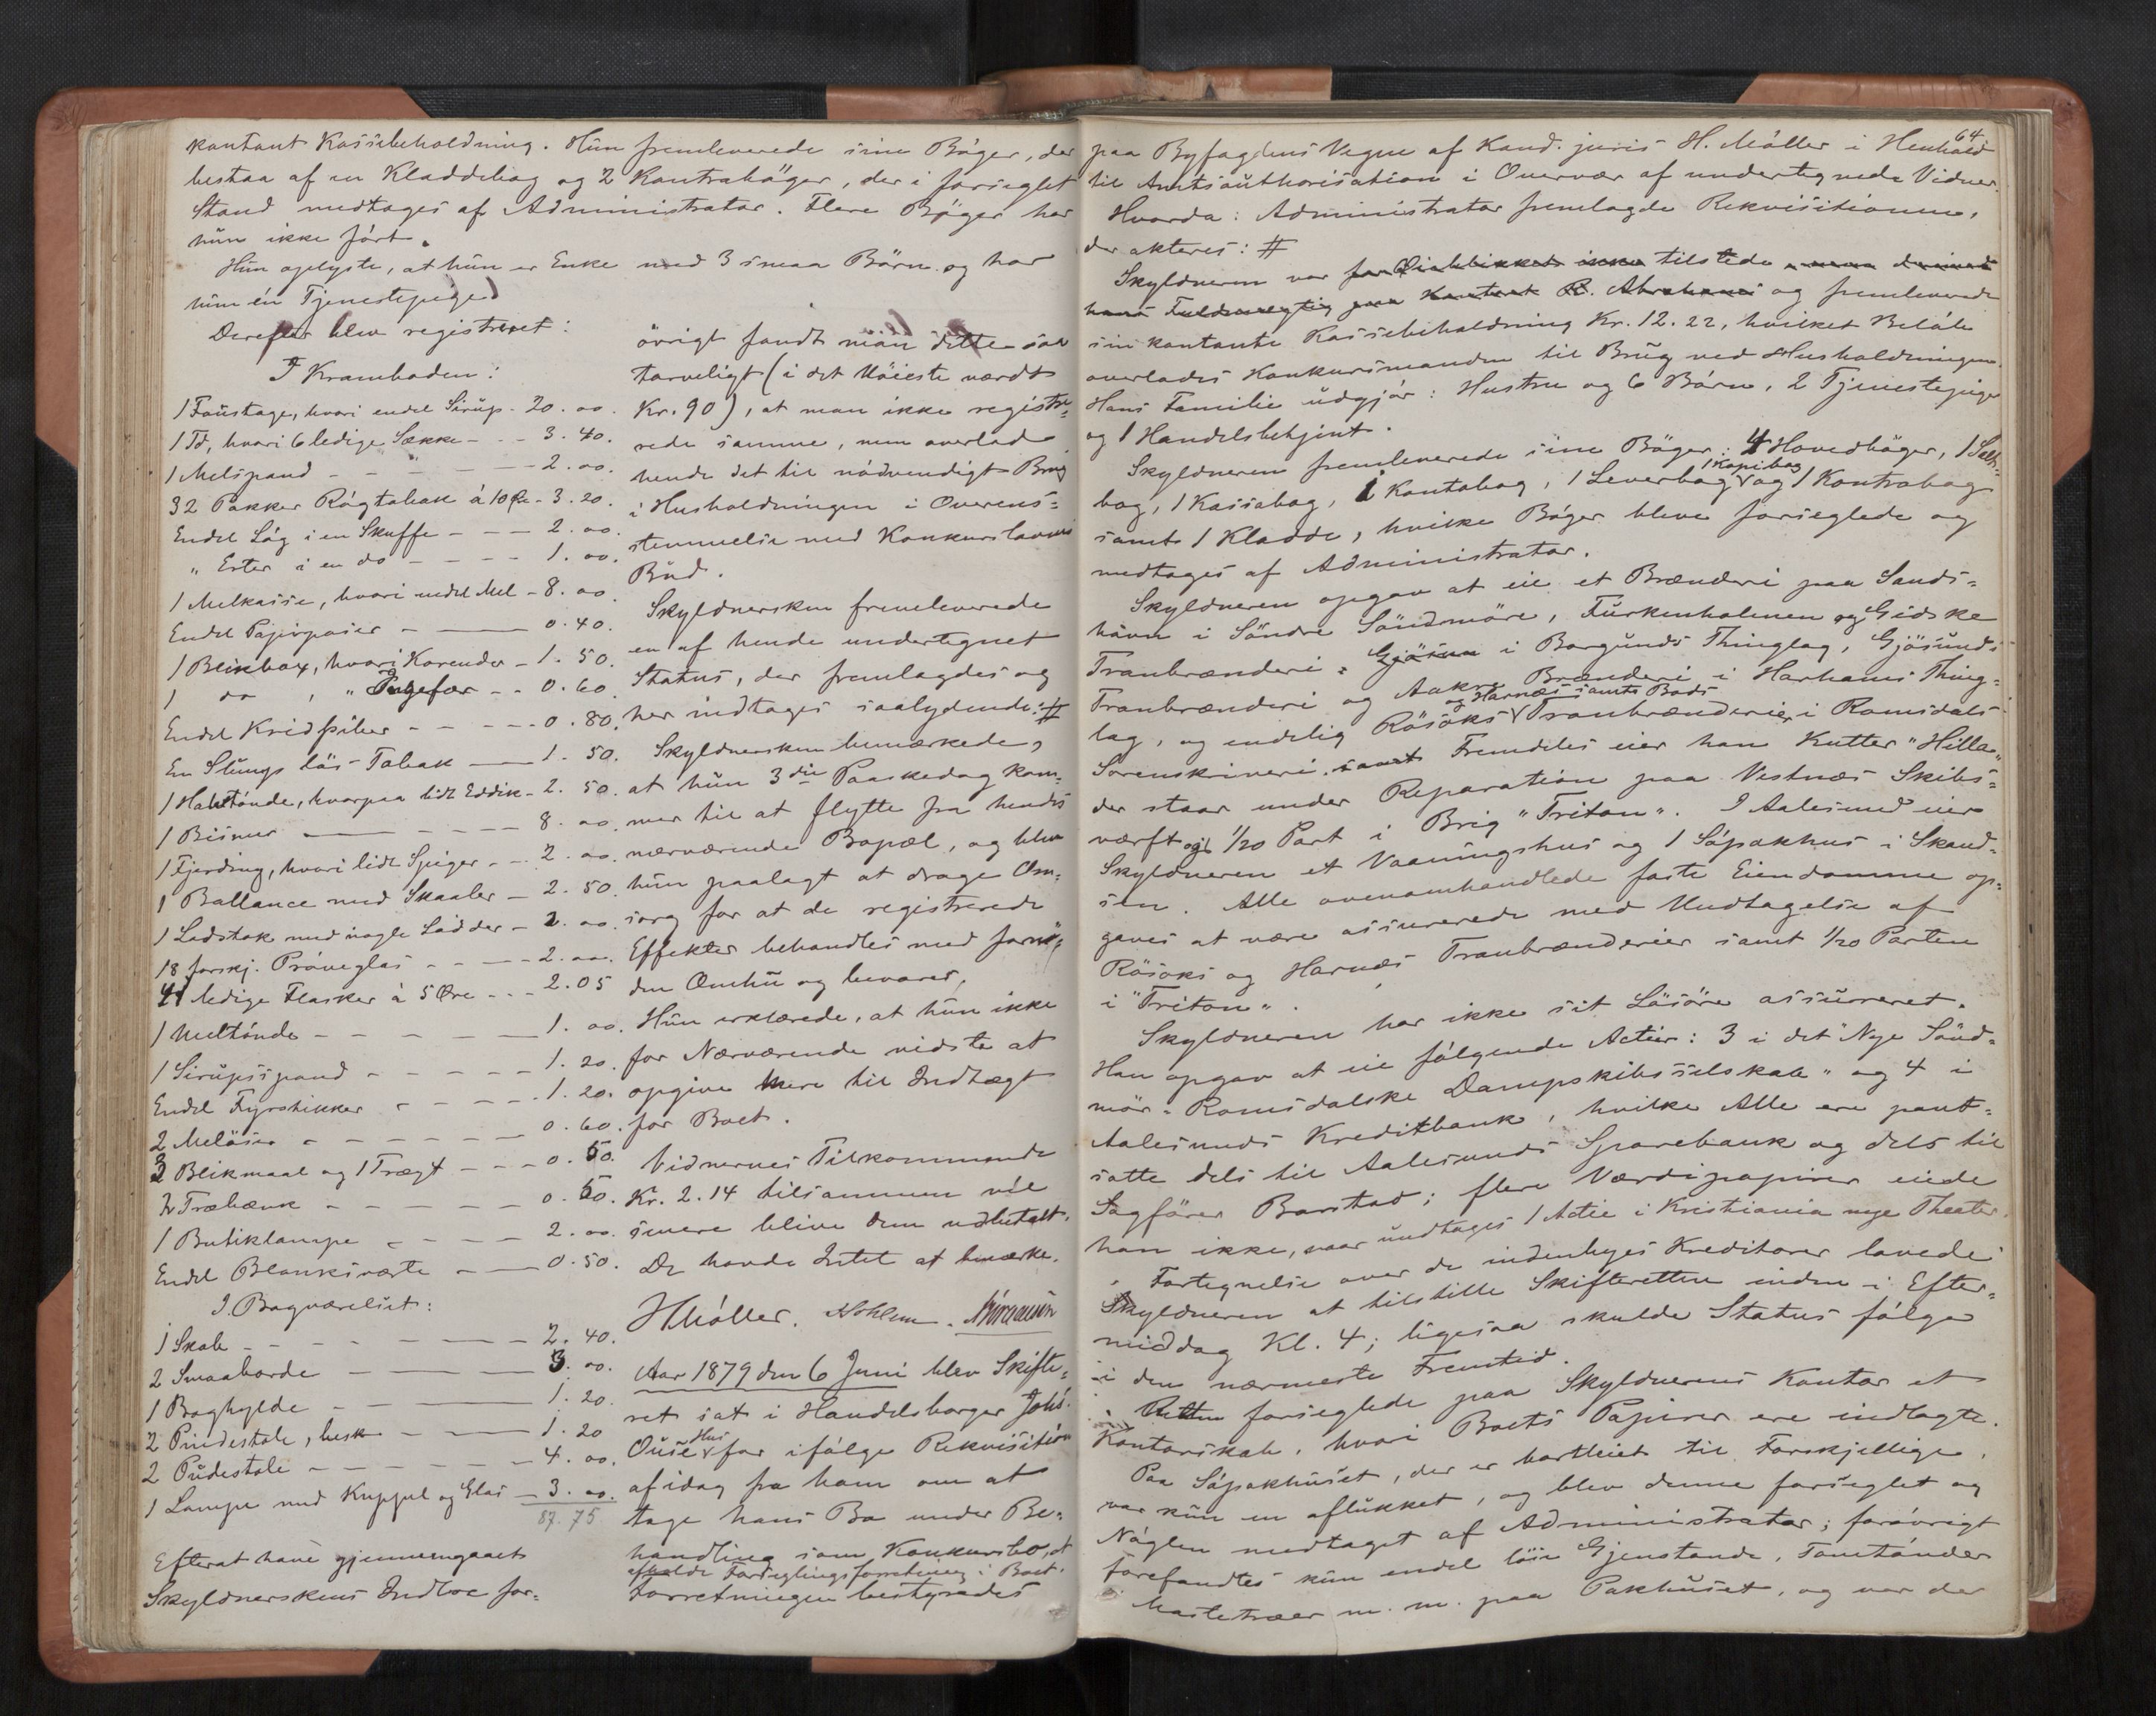 kontant Kassebeholdning. Hun fremleverede sine Bøger, der
bestaa af en Kladdebog og 2 Kontrabøger, der i forseglet
Stand medtages af Administrator. Flere Bøger har
hun ikke ført.
Hun oplyste, at hun er Enke med 3 smaa Børn og har
kun én Tjenestepige.
Derefter blev registreret:
I Kramboden:
1 Foustage, hvori endel Sirup - 20.00
1 Td, hvori 6 ledige Sække - 3.40.
1 Melspand - 2.00.
32 Pakker Røgtobak à 10 Øre - 3.20.
Endel Løg i en Skuffe - 2.00.
" Erter i en do - 1.00.
1 Melkasse, hvori endel Mel - 8.00.
Endel Papirposer - 0.40.
1 Blikbox, hvori Korender - 1.50.
1 do , " Ingefær - 0.60
Endel Kridtpiber - 0.80.
En Slump løs Tobak - 1.50.
1 Halvtønde, hvorpaa lidt Eddik - 2.50.
1 Bismer - 8.00.
1 Fjerding, hvori lidt Spiger - 2.00.
1 Ballance med Skaaler - 2.50.
1 Ladstok med nogle Lodder - 2.00.
18 forskj. Prøveglas - 2.00.
41 ledige Flasker à 5 Øre - 2.05
1 Meltønde - 1.00.
1 Sirupsspand - 1.20.
Endel Fyrstikker - 1.20.
2 Meløser - 0.60.
3 Blikmaal og 1 Tragt - 0.50.
2 Træbænk - 0.50.
1 Butiklampe - 2.00.
Endel Blanksværte - 0.50.
I Bagværelset:
1 Skab - 2.40.
2 Smaaborde - 3.00.
1 Boghylde - 1.20.
2 Pindestole, besk. - 1.20
2 Pudestole - 4.00.
1 Lampe med Kuppel og Glas - 3.00.
87.75
Efterat have gjennemgaaet
Skyldnerskens Indboe for=
øvrigt fandt man dette saa
tarveligt (i det Høieste værdt
Kr. 90), at man ikke registre=
rede samme, men overlod
hende det til nødvendigt Brug
i Husholdningen i Overens=
stemmelse med Konkurslovens
Bud.
Skyldnersken fremleverede
en af hende undertegnet
Status, der fremlagdes og
her indtages saalydende: #
Skyldnersken bemærkede,
at hun 3die Paaskedag kom=
mer til at flytte fra hendes
nærværende Bopæl, og blev
hun paalagt at drage Om=
sorg for at de registrerede
Effekter behandles med fornø=
den Omhu og bevares.
Hun erklærede, at hun ikke
for Nærværende vidste at
opgive mere til Indtægt
for Boet.
Vidnernes Tilkommende
Kr. 2.14 tilsammen vil
senere blive dem udbetalt.
De havde Intet at bemærke.
HMøller.
Aar 1879 den 6 Juni blev Skifte=
ret sat i Handelsborger Johs.
Ouse's Hus for ifølge Rekvisition
af idag fra ham om at
tage hans Bo under Be=
handling som Konkursbo, at
afholde Forseglingsforretning i Boet.
Forretningen bestyredes
64
paa Byfogdens Vegne af Kand. juris H. Møller i Henhold
til Amtsauthorisation i Overvær af undertegnede Vidner.
Hvorda: Administrator fremlagde Rekvisitionen,
der akteres: #
Skyldneren var for Øieblikket ikke tilstede
hans Fuldmægtig paa Kontoret R. Abrahams og fremleverede
sin kontante Kassebeholdning Kr. 12.22, hvilket Beløb
overlades Konkursmanden til Brug ved Husholdningen.
Hans Familie udgjør: Hustru og 6 Børn, 2 Tjenestepiger
og 1 Handelsbetjent.
Skyldneren fremleverede sine Bøger: 4 Hovedbøger, 1 Salt=
bog, 1 Kassabog, 1 Kontobog, 1 Leverbog, 1 Kopibog og 1 Kontrabog
samt 1 Kladde, hvilke Bøger bleve forseglede og
medtages af Administrator.
Skyldneren opgav at eie et Brænderi paa Sands=
havn i Søndre Søndmøre, Furkenholmen og Gidske
Tranbrænderi i Borgunds Thinglag, Gjøsunds
Tranbrænderi og Aakre Brænderi i Harhams Thing=
lag, og endelig Røsoks og Harnæs samt Bods Tranbrænderier i Romsdals
Sorenskriveri. Fremdeles eier han Kutter "Hilla",
der staar under Reparation paa Vestnæs Skibs=
værft og 1/20 Part i Brig "Triton". I Aalesund eier
Skyldneren et Vaaningshus og 1 Søpakhus i Skand=
sen. Alle ovenomhandlede faste Eiendomme op=
gaves at være assurerede med Undtagelse af
Røsoks og Harnæs Tranbrænderier samt 1/20 Parten
i "Triton".
Skyldneren har ikke sit Løsøre assureret.
Han opgav at eie følgende Actier: 3 i det "Nye Sønd=
mør-Romsdalske Dampskibsselskab" og 4 i
Aalesunds Kreditbank, hvilke Alle ere pant=
satte dels til Aalesunds Sparebank og dels til
Sagfører Barstad; flere Værdipapirer eiede
han ikke, naar undtages 1 Actie i Kristiania nye Theater.
Fortegnelse over de indenbyes Kreditorer lovede
Skyldneren at tilstille Skifteretten inden i Efter=
middag Kl. 4; ligesaa skulde Status følge
i den nærmeste Fremtid.
Retten forseglede paa Skyldnerens Kontor et
Kontorskab, hvori Boets Papirer ere indlagte.
Paa Søpakhuset, der er bortleiet til Forskjellige,
var kun en aflukket, og blev denne forseglet og
Nøglen medtaget af Administrator; forøvrigt
forefandtes kun endel løse Gjenstande, Tomtønder
Mastetræer m. m. paa Pakhuset, og var der